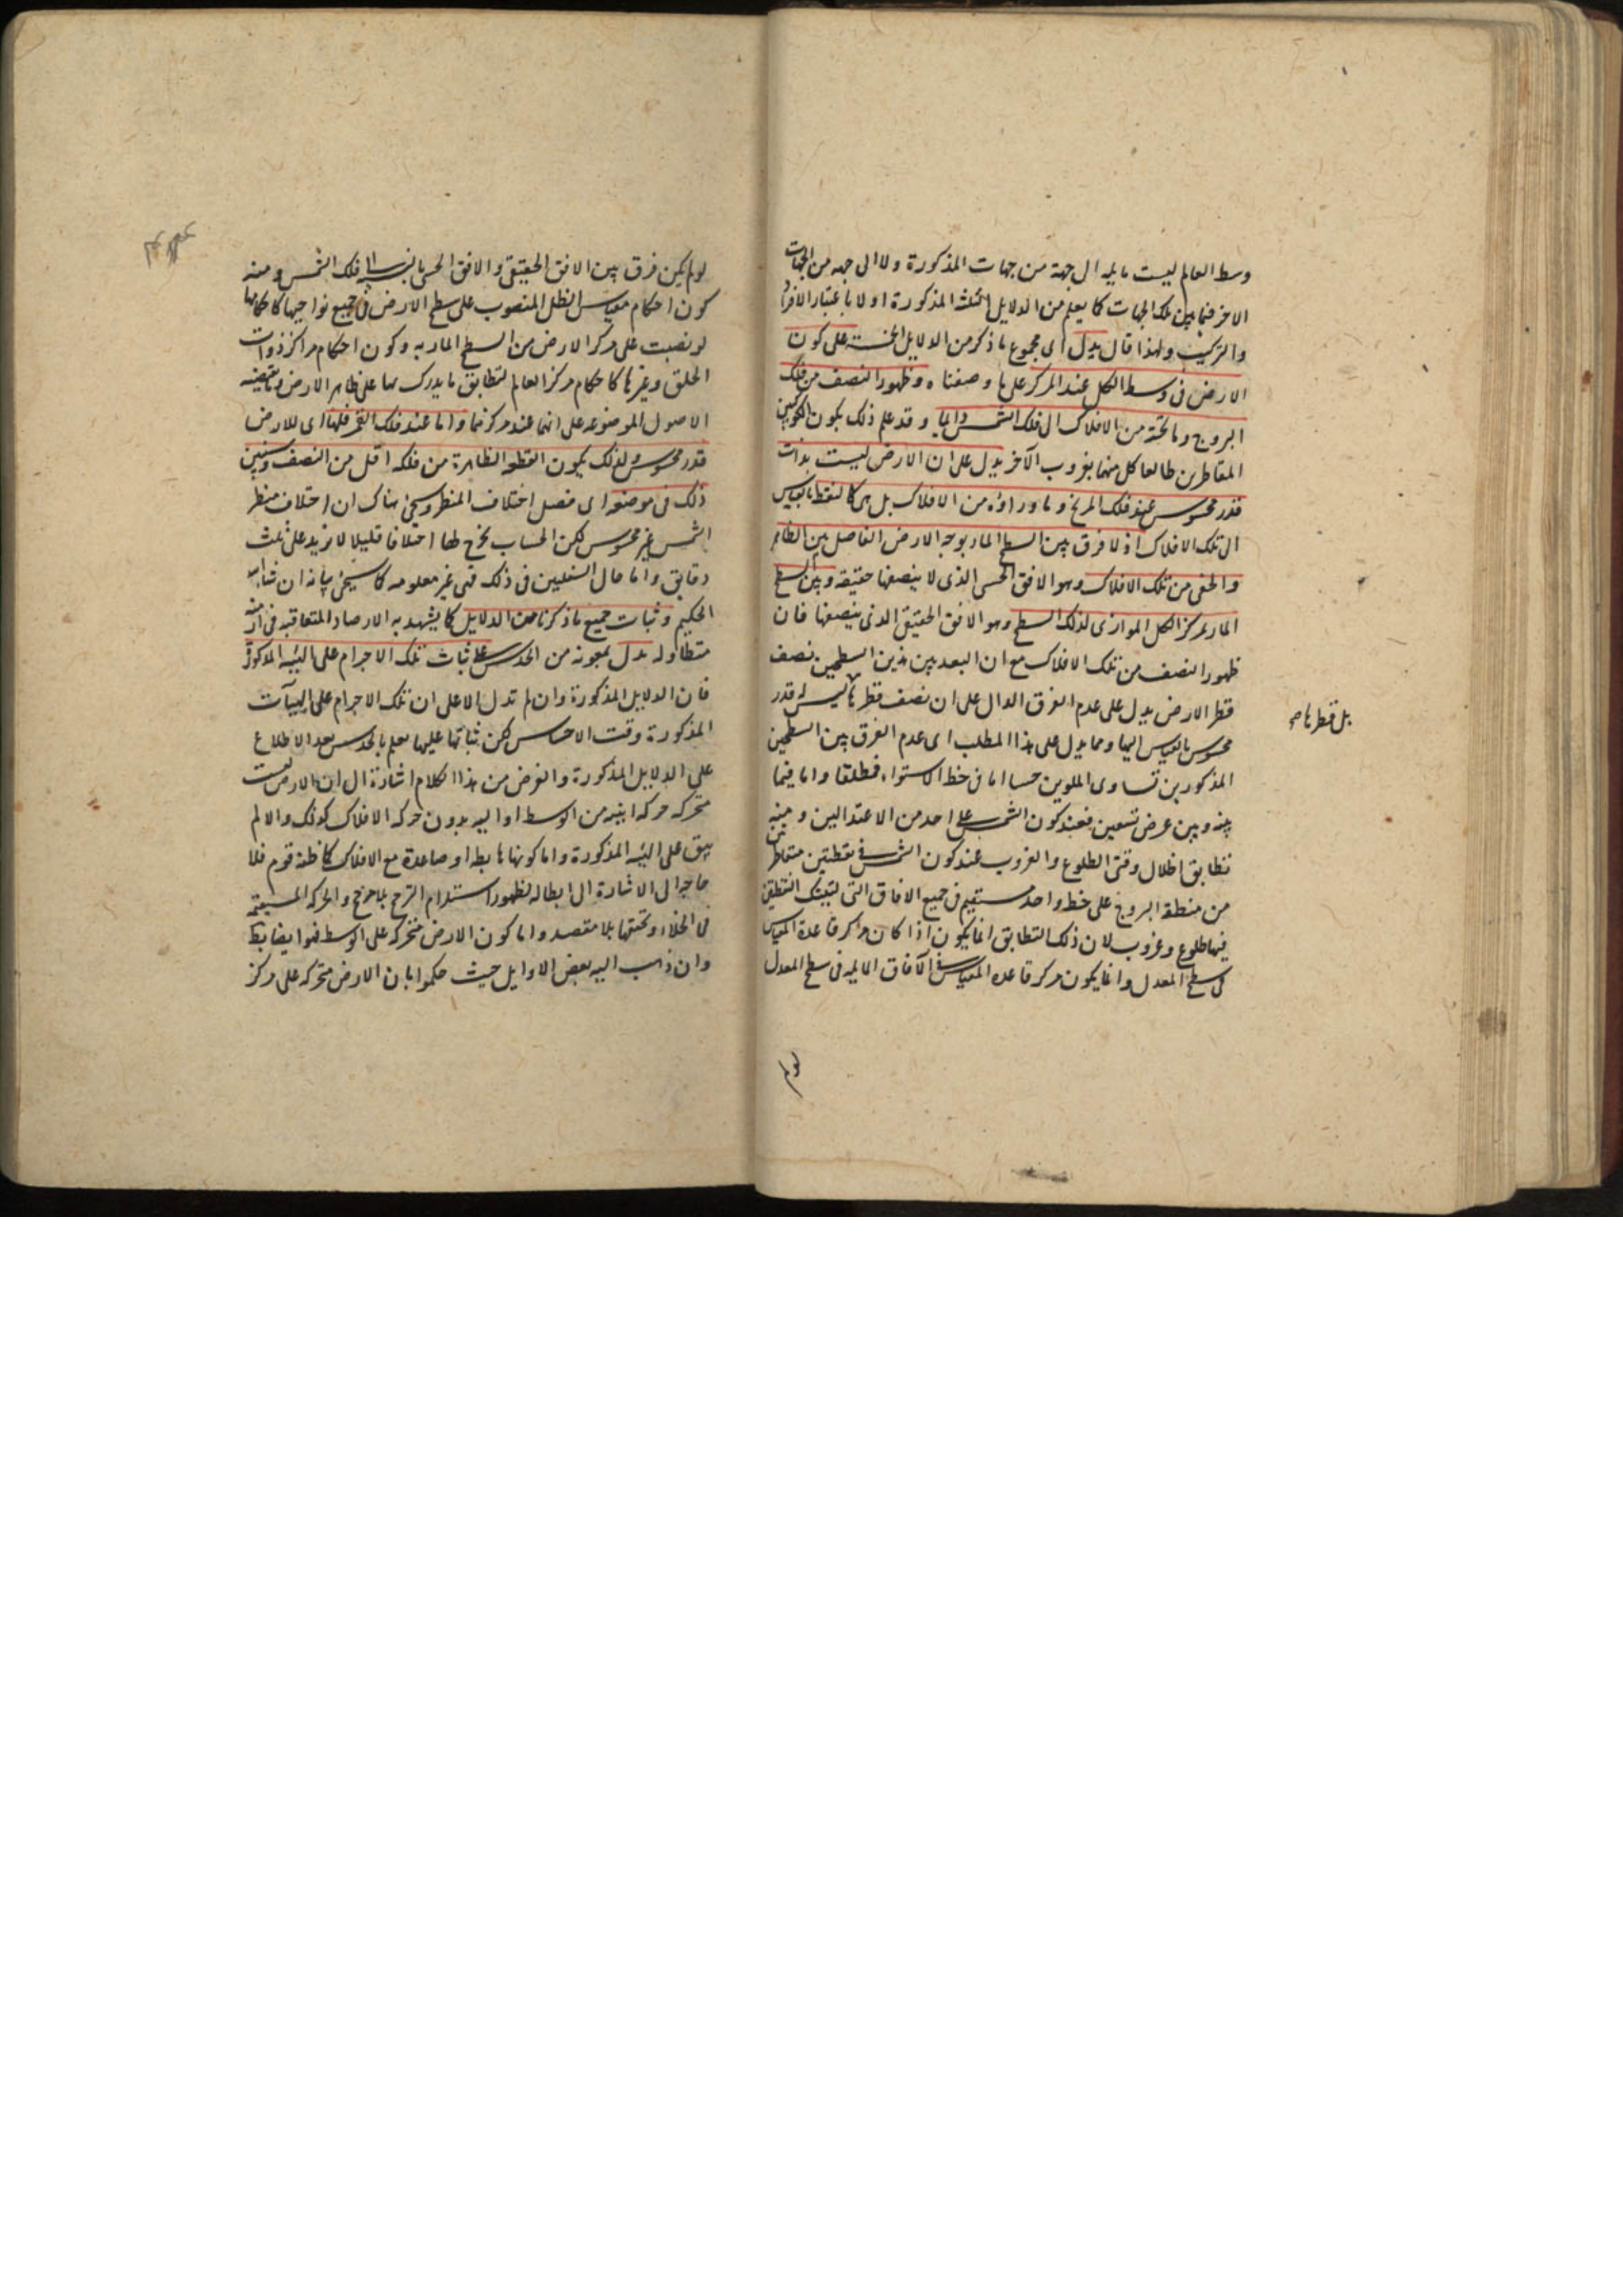 وسط العالم ليست مايله الى جهة من جهات المذكورة ولا الى جهه من الجهات
الاخر فيما بين تلك الجهات كما يعلم من الدلايل الثلث المذكورة اولا باعتبار الافراد
والتركيب ولهذا قال يدل اى مجموع ما ذكر من الدلايل الخمسة على كون
الارض فى وسط الكل عند المركز على ما وصفناه وظهور النصف من فلك
البروج وما تحته من الافلاك الى فلك الشمس دايما وقد علم ذلك بكون الكوكبين
المتقاطرين طالعا كل منهما بغروب الآخر يدل على ان الارض ليست بذات
قدر محسوس عند فلك المريخ وما وراؤه من الافلاك بل هى كالنقطة بالقياس
الى تلك الافلاك اذ لا فرق بين السطح المار بوجه الارض الفاصل بين الظاهر
والخفى من تلك الافلاك وهو الافق الحسى الذى لا ينصفها حقيقة وبين السطح
المار بمركز الكل الموازى لذلك السطح وهو الافق الحقيقى الذى ينصفها فان
ظهور النصف من تلك الافلاك مع ان البعد بين هذين السطحين نصف
قطر الارض يدل على عدم الفرق الدال على ان نصف قطرها ليس له قدر
بل قطرها صح
محسوس بالقياس اليها ومما يدل على هذا المطلب اى عدم الفرق بين السطحين
المذكورين تساوى الملوين حسا اما فى خط الاستواء فمطلقا واما فيما
بينه وبين عرض تسعين فعند كون الشمس على احد من الاعتدالين ومنه
تطابق اظلال وقتى الطلوع والغروب عند كون الشمس فى نقطتين متقاطرتين
من منطقة البروج على خط واحد مستقيم فى جميع الافاق التى لتينك النقطتين
فيها طلوع وغروب لان ذلك التطابق انما يكون اذا كان مركز قاعدة المقياس
فى سطح المعدل وانما يكون مركز قاعده المقياس فى الآفاق المايله فى سطح المعدل
لو لم
لو لم يكن فرق بين الافق الحقيقى والافق الحسى بالنسبة الى فلك الشمس ومنه
كون احكام مقياس الظل المنصوب على سطح الارض فى جميع نواحيها كاحكامها
لو نصبت على مركز الارض من السطح المار به وكون احكام مراكز ذوات
الحلق وغيرها كاحكام مركز العالم لتطابق ما يدرك بها على ظاهر الارض وما يقتضيه
الاصول الموضوعه على انها عند مركزها واما عند فلك القمر فلها اى للارض
قدر محسوس ولذلك يكون القطعه الظاهرة من فلكه اقل من النصف وسنبين
ذلك فى موضعه اى فصل اختلاف المنظر وسيجئ هناك ان اختلاف منظر
الشمس غير محسوس لكن الحساب يخرج لها اختلافا قليلا لا يزيد على ثلث
دقايق واما حال السفليين فى ذلك فهى غير معلومه كما سيجئ بيانه ان شاء الله
الحكيم وثبات جميع ما ذكرنا من الدلايل كما يشهد به الارصاد المتعاقبه فى ازمنه
متطاوله يدل بمعونه من الحدس على ثبات تلك الاجرام على الهيئه المذكورة
فان الدلايل المذكورة وان لم تدل الا على ان تلك الاجرام على الهيآت
المذكورة وقت الاحساس لكن ثباتها عليها يعلم بالحدس بعد الاطلاع
على الدلايل المذكورة والغرض من هذا الكلام اشارة الى ان الارض ليست
متحركه حركه اينيه من الوسط او اليه بدون حركه الافلاك كذلك والا لم
يبق على الهيئه المذكورة واما كونها هابطه او صاعدة مع الافلاك كما ظنه قوم فلا
حاجه الى الاشارة الى ابطاله لظهور استلزام الترجح بلا مرجح والحركه المستقيمه
فى الخلاء وتحققها بلا مقصد واما كون الارض متحركه على الوسط فهو ايضا بط
وان ذهب اليه بعض الاوايل حيث حكموا بان الارض متحركه على مركز